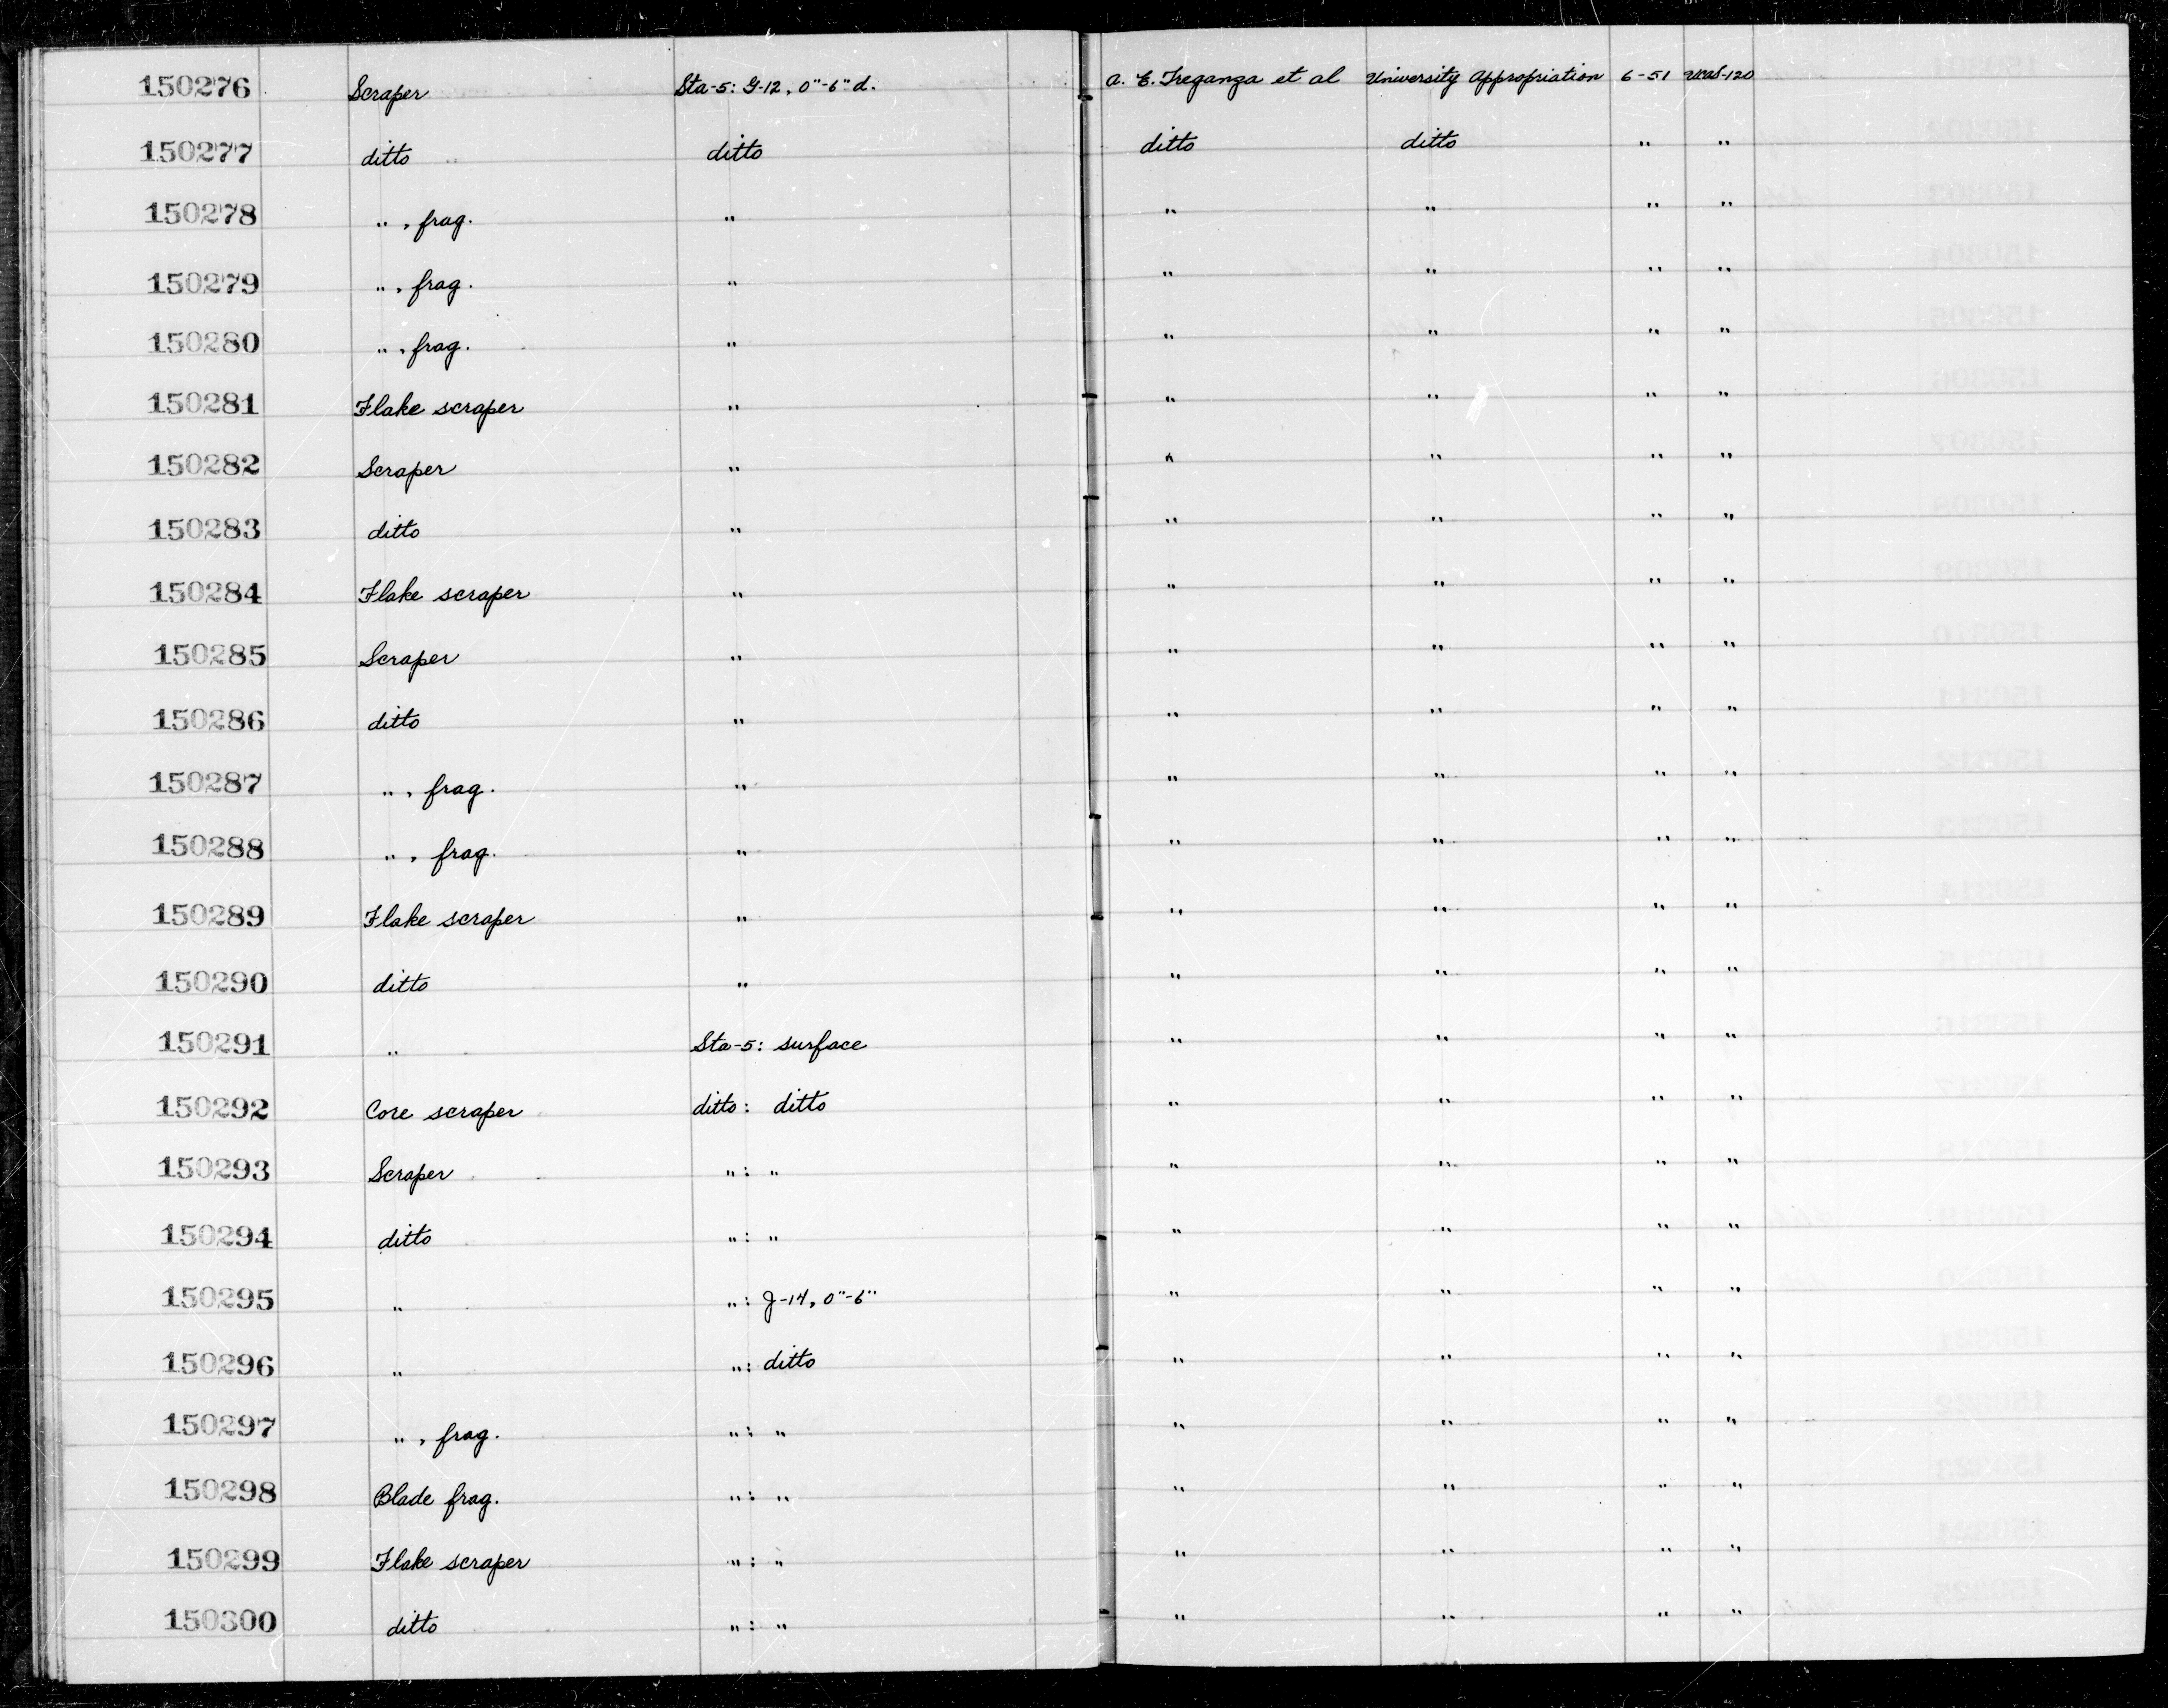 150276 Scraper Sta-5: G-12, 0"-6" d. A. E. Treganza et al University Appropriation 6-51 UCAS-120
150277 ditto ditto ditto ditto " "
150278 " , frag. " " " " "
150279 " , frag. " " " " "
150280 " , frag. " " " " "
150281 Flake scraper " " " " "
150282 Scraper " " " " "
150283 ditto " " " " "
150284 Flake scraper " " " " "
150285 Scraper " " " " "
150286 ditto " " " " "
150287 " , frag. " " " " "
150288 " , frag. " " " " "
150289 Flake scraper " " " " "
150290 ditto " " " " "
150291 " Sta-5: surface " " " "
150292 Core scraper ditto: ditto " " " "
150293 Scraper " : " " " " "
150294 ditto " : " " " " "
150295 " " : J-14, 0"-6" " " " "
150296 " " : ditto " " " "
150297 " , frag. " : " " " " "
150298 Blade frag. " : " " " " "
150299 Flake scraper " : " " " " "
150300 ditto " : " " " " "